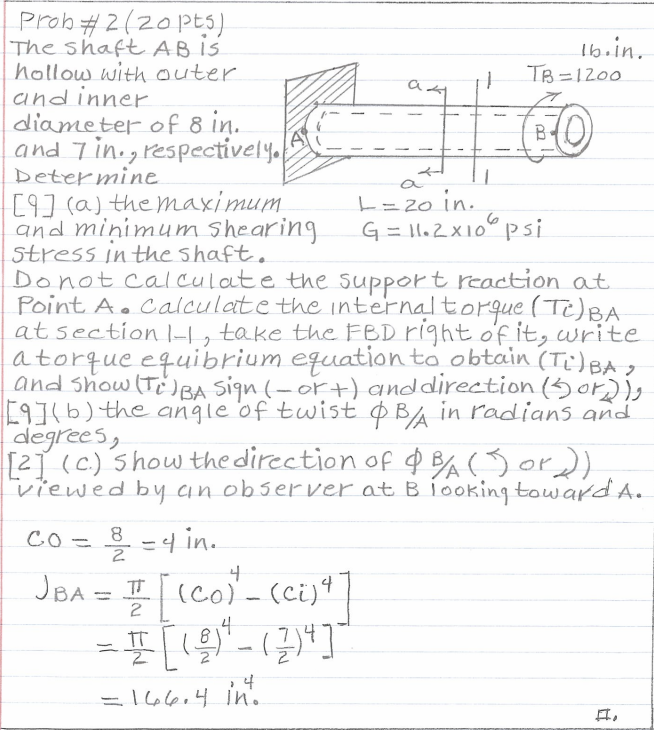 Prob #2 (20 pts)
The shaft AB is
hollow with outer
and inner
diameter of 8 in.
and 7 in., respectively.
Determine
[9] (a) the maximum
and minimum shearing
stress in the shaft.
lb.in.
TB=1200
a
1
A
B
a
1
L=20 in.
G=11.2x10⁶ psi
Do not calculate the support reaction at
Point A. Calculate the internal torque (Ti)BA
at section 1-1, take the FBD right of it, write
a torque equibrium equation to obtain (Ti)BA,
and show (Ti)BA sign (- or +) and direction (↺ or ↻),
[9] (b) the angle of twist ϕ B/A in radians and
degrees,
[2] (c) show the direction of ϕ B/A (↺ or ↻)
viewed by an observer at B looking toward A.
CO = 8/2 = 4 in.
JBA = π/2 [(CO)⁴ - (Ci)⁴]
= π/2 [(8/2)⁴ - (7/2)⁴]
= 166.4 in⁴.